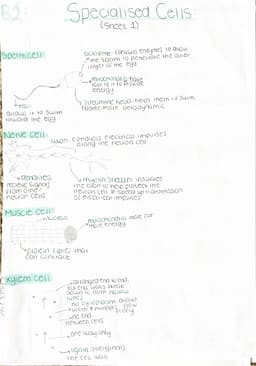 B2:
Specialised Cells
(Sheet 1)
Sperm cell:
acrosome contains enzymes to allow
the sperm to penetrate the outer
layer of the egg
mitochondria have
lots of it to provide
energy
streamline head helps them to swim
faster more aerodynamic
tail
allows it to swim
toward the egg
Nerve cell:
axon conducts electrical impulses
along the neuron cell
dendrites
recieve signals
from other
neuron cells
myelin sheath insulates
the axon to help protect the
neuron cell & speed up transmission
of electrical impulses
Muscle cell:
nucleus
mitochondria more for
more energy
protein fibres that
can contract
xylem cell:
arranged end to end,
but end walls break
down to form hollow
tubes
no cytoplasm allows
water & minerals flow
freely
no end
between cells
one way only
lignin strengthens
the cell wall